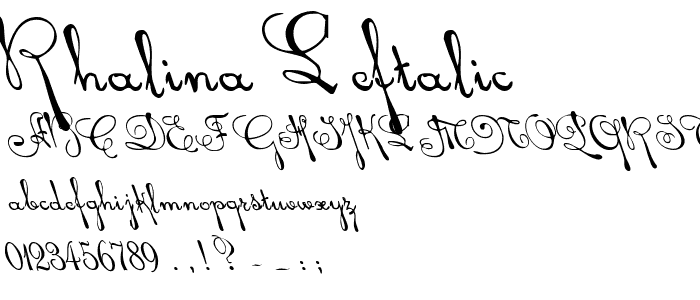 Rhalina Leftalic
ABCDEFGHIJKLMNOPQRST
abcdefghijklmnopqrstuvwxyz
0123456789 .,!? - _ : ;